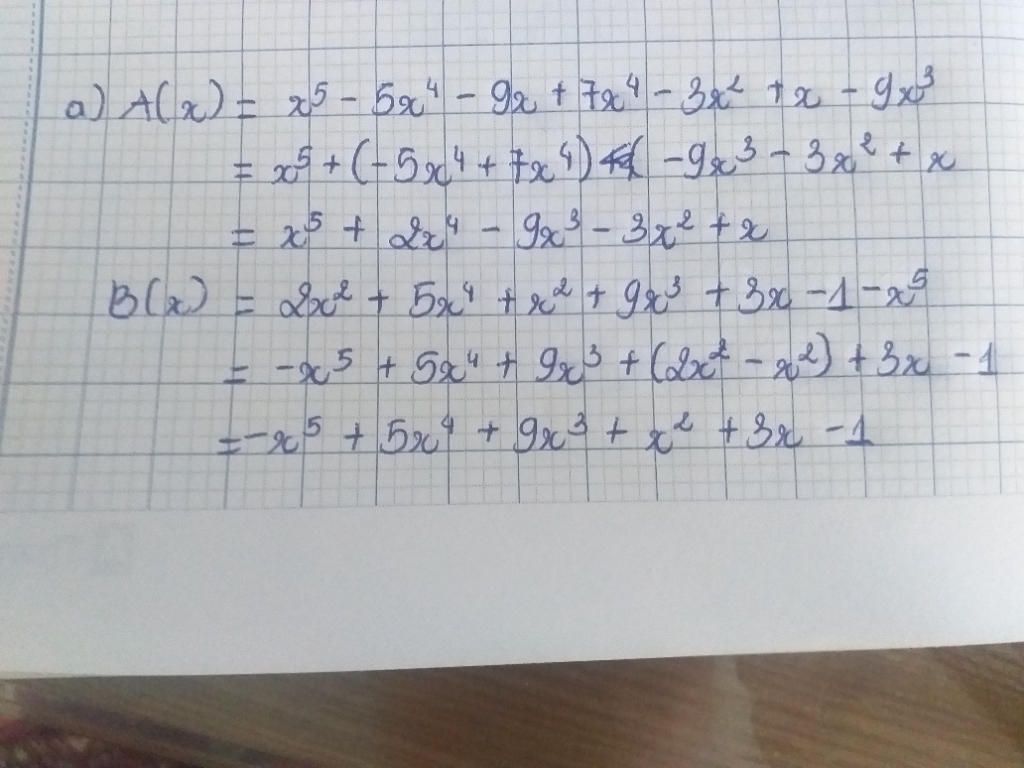 a) A(x) = x⁵ - 5x⁴ - 9x + 7x⁴ - 3x² + x - 9x³
= x⁵ + (-5x⁴ + 7x⁴) - 9x³ - 3x² + x
= x⁵ + 2x⁴ - 9x³ - 3x² + x
B(x) = 2x² + 5x⁴ + x² + 9x³ + 3x - 1 - x⁵
= -x⁵ + 5x⁴ + 9x³ + (2x² - x²) + 3x - 1
= -x⁵ + 5x⁴ + 9x³ + x² + 3x - 1